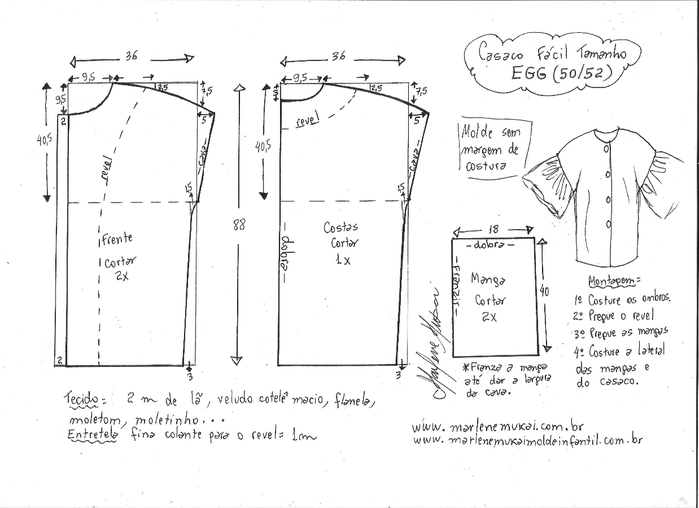 Casaco Fácil Tamanho
EGG (50/52)
Molde sem
margem de
costura
36
9,5
2,5
7,5
9,5
2
5
40,5
cava
revel
15
Frente
Cortar
2x
2
3
88
36
9,5
2,5
7,5
3
5
40,5
cava
revel
15
dobra
Costas
Cortar
1x
3
18
dobra
Franzir
Manga
Cortar
2x
40
*Franza a manga
até dar a largura
da cava.
Marlene Mukai
Montagem=
1º Costure os ombros.
2º Pregue o revel
3º Pregue as mangas
4º Costure a lateral
das mangas e
do casaco.
Tecido= 2 m de lã, veludo cotelê macio, flanela,
moletom, moletinho...
Entretela fina colante para o revel= 1m
www.marlenemukai.com.br
www.marlenemukaimoldeinfantil.com.br